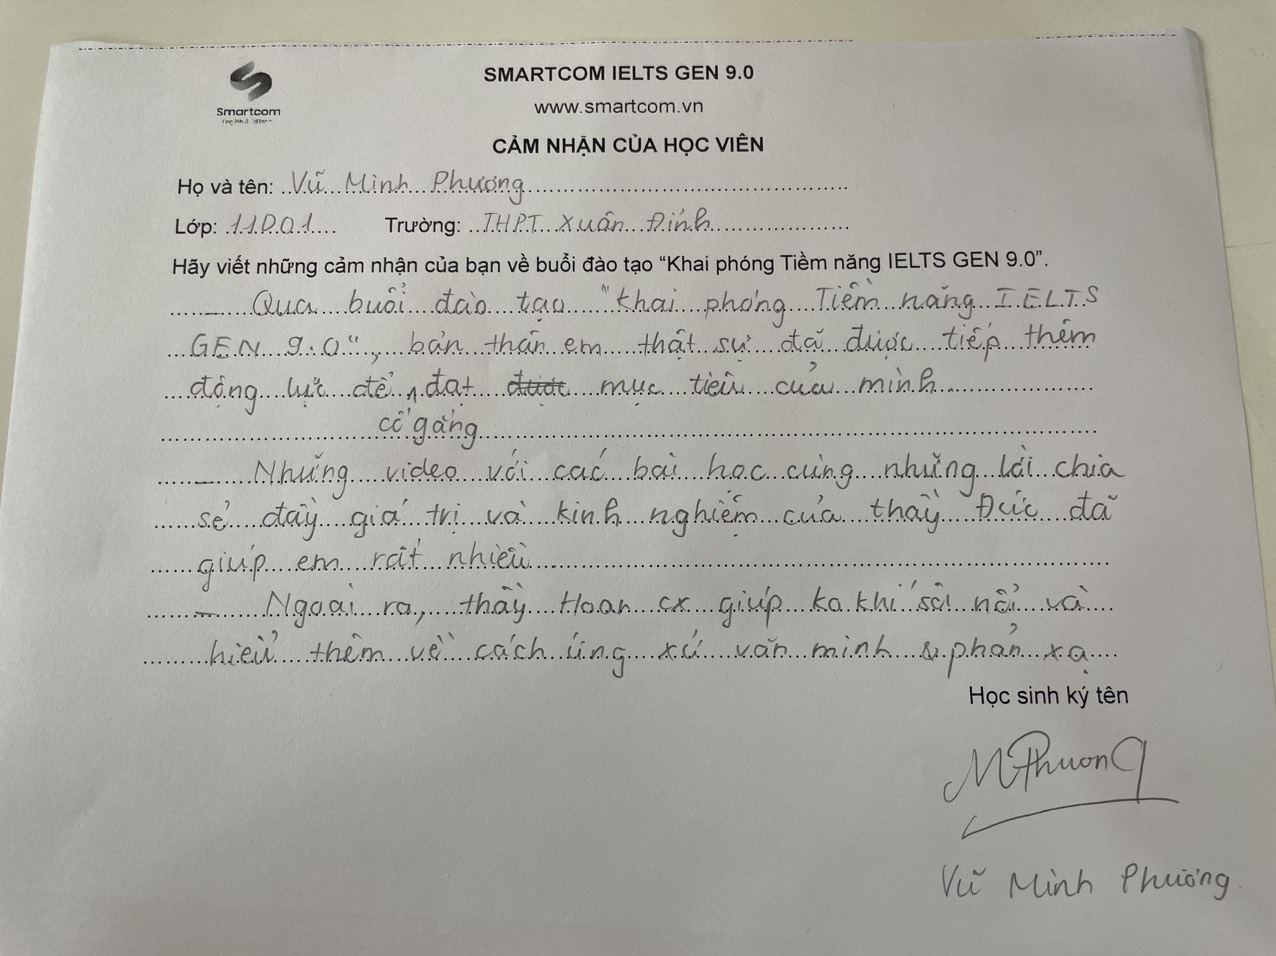 Smartcom
SMARTCOM IELTS GEN 9.0
www.smartcom.vn
CẢM NHẬN CỦA HỌC VIÊN
Họ và tên: Vũ Minh Phương
Lớp: 11D01 Trường: THPT Xuân Đỉnh
Hãy viết những cảm nhận của bạn về buổi đào tạo “Khai phóng Tiềm năng IELTS GEN 9.0”.
- Qua buổi đào tạo "Khai phóng Tiềm năng IELTS
GEN 9.0", bản thân em thật sự đã được tiếp thêm
động lực để ^ đạt được mục tiêu của mình
cố gắng
- Những video với các bài học cùng những lời chia
sẻ đầy giá trị và kinh nghiệm của thầy Đức đã
giúp em rất nhiều
- Ngoài ra, thầy Hoan cx giúp ko khí sôi nổi và
hiểu thêm về cách ứng xử văn minh & phản xạ
Học sinh ký tên
MPhuong
Vũ Minh Phương